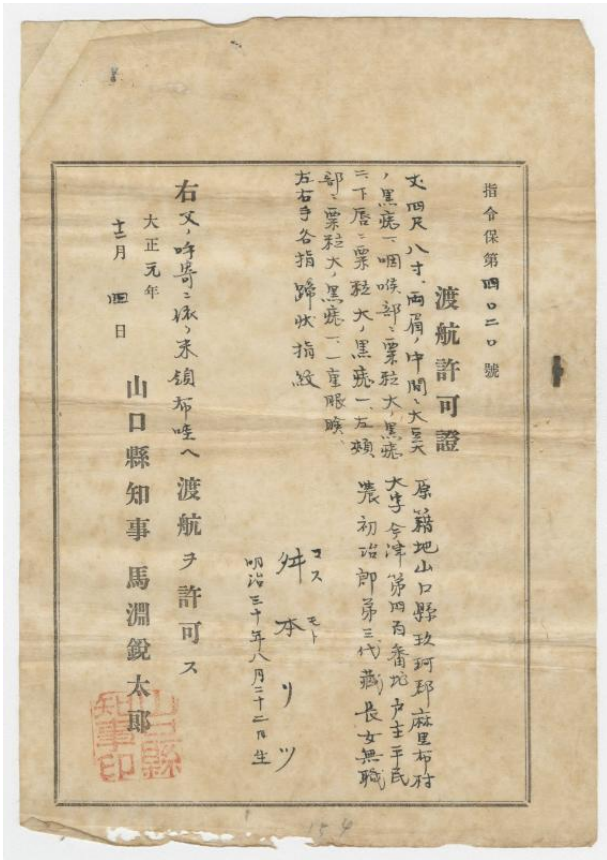 指令保第四〇二〇號
渡航許可證
原籍地山口縣玖珂郡麻里布村
大字今津第四百番地戸主平民
農初治郎弟三代藏長女無職
マス モト
舛本リツ
明治三十年八月二十二日生
丈四尺八寸、両眉ノ中間ニ大豆大
ノ黒痣一、咽喉部ニ粟粒大ノ黒痣
二、下唇ニ粟粒大ノ黒痣一、左頬
部ニ粟粒大ノ黒痣一、一重眼瞼、
左右手各指蹄状指紋
右父ノ呼寄ニ依リ米領布哇ヘ渡航ヲ許可ス
大正元年
十二月四日
山口縣知事 馬淵鋭太郎
山口縣
知事印